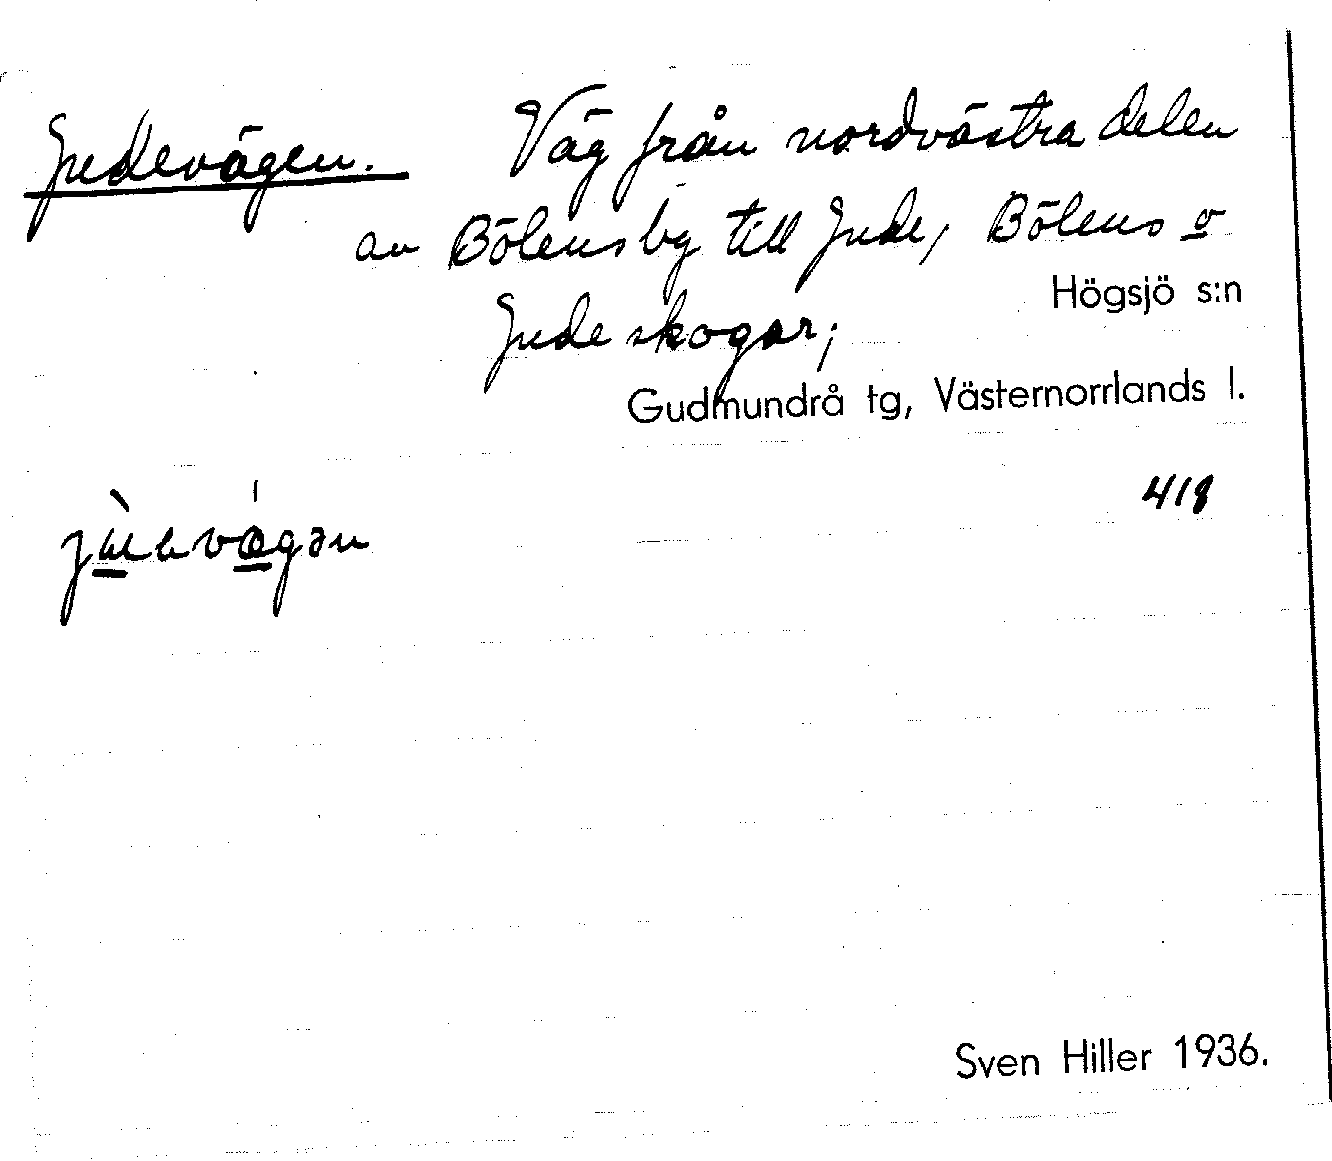 Judevägen. Väg från nordvästra delen
av Bölens by till Jude, Bölens o
Högsjö s:n
Jude skogar;
Gudmundrå tg, Västernorrlands l.
418
Sven Hiller 1936.